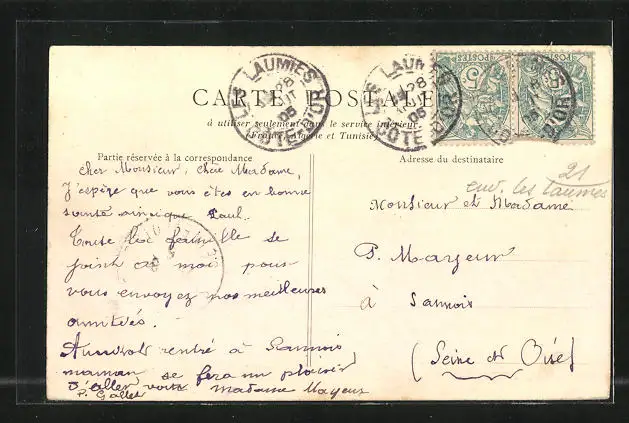 CARTE POSTALE
à utiliser seulement dans le service intérieur
(France, Algérie et Tunisie)
Partie réservée à la correspondance
Cher Monsieur, chère Madame,
J'espère que vous êtes en bonne
santé ainsi que Paul.
Toute la famille se
joint à moi pour
vous envoyez nos meilleures
amitiés.
Aussitôt rentré à Sannois
maman se fera un plaisir
d'aller voir Madame Mayeur
P. Gallet
Adresse du destinataire
21
env. les Laumes
Monsieur et Madame
P. Mayeur
à Sannois
(Seine et Oise)
LES LAUMES
28
05
CÔTE D'OR
LES LAUMES
28
05
CÔTE D'OR
POSTES
5
POSTES
5
D'OR